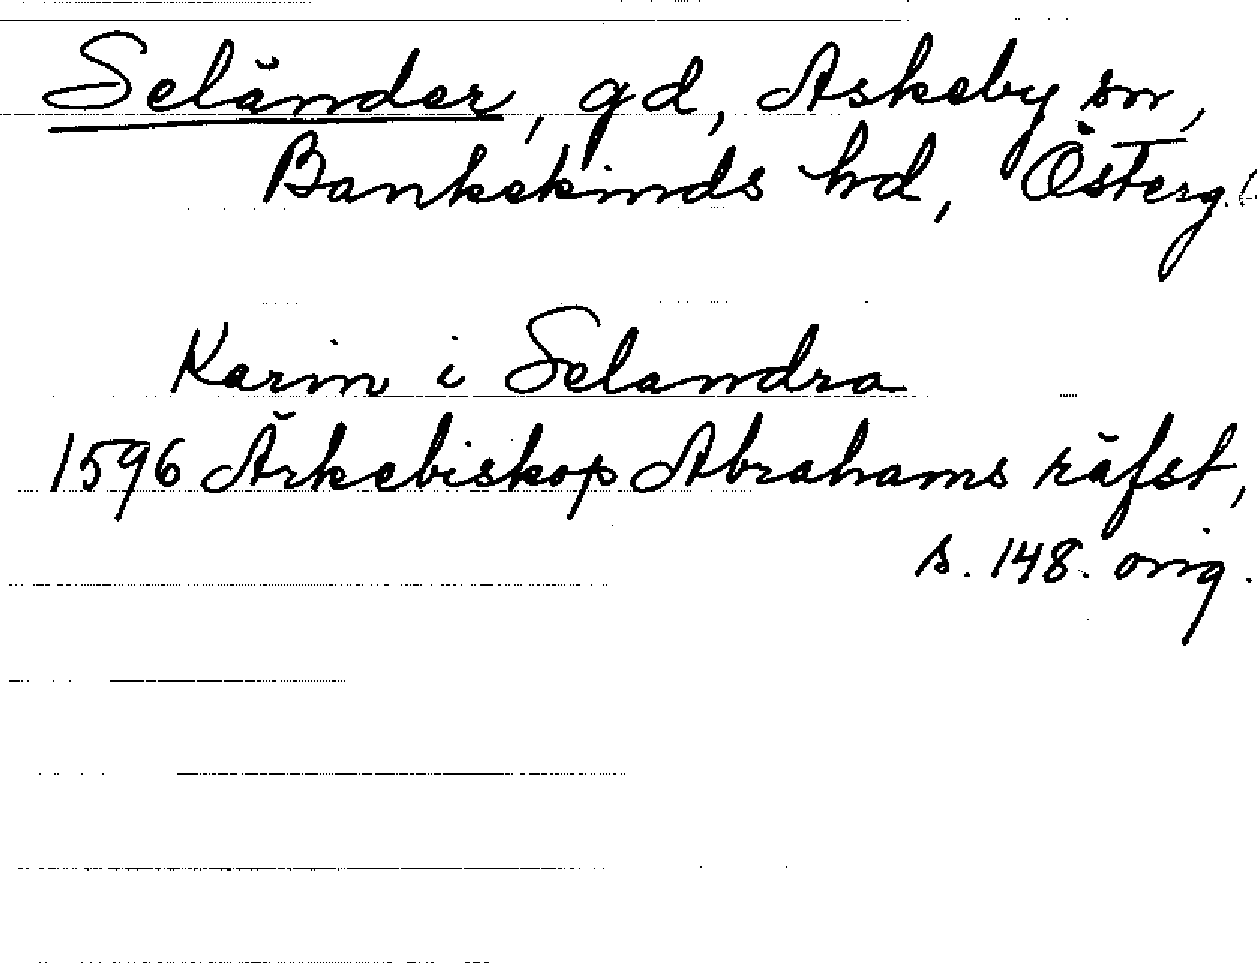 Seländer, gd, Askeby sn,
Bankekinds hd, Österg.
Karin i Selandra
1596 Ärkebiskop Abrahams räfst,
s. 148. orig.